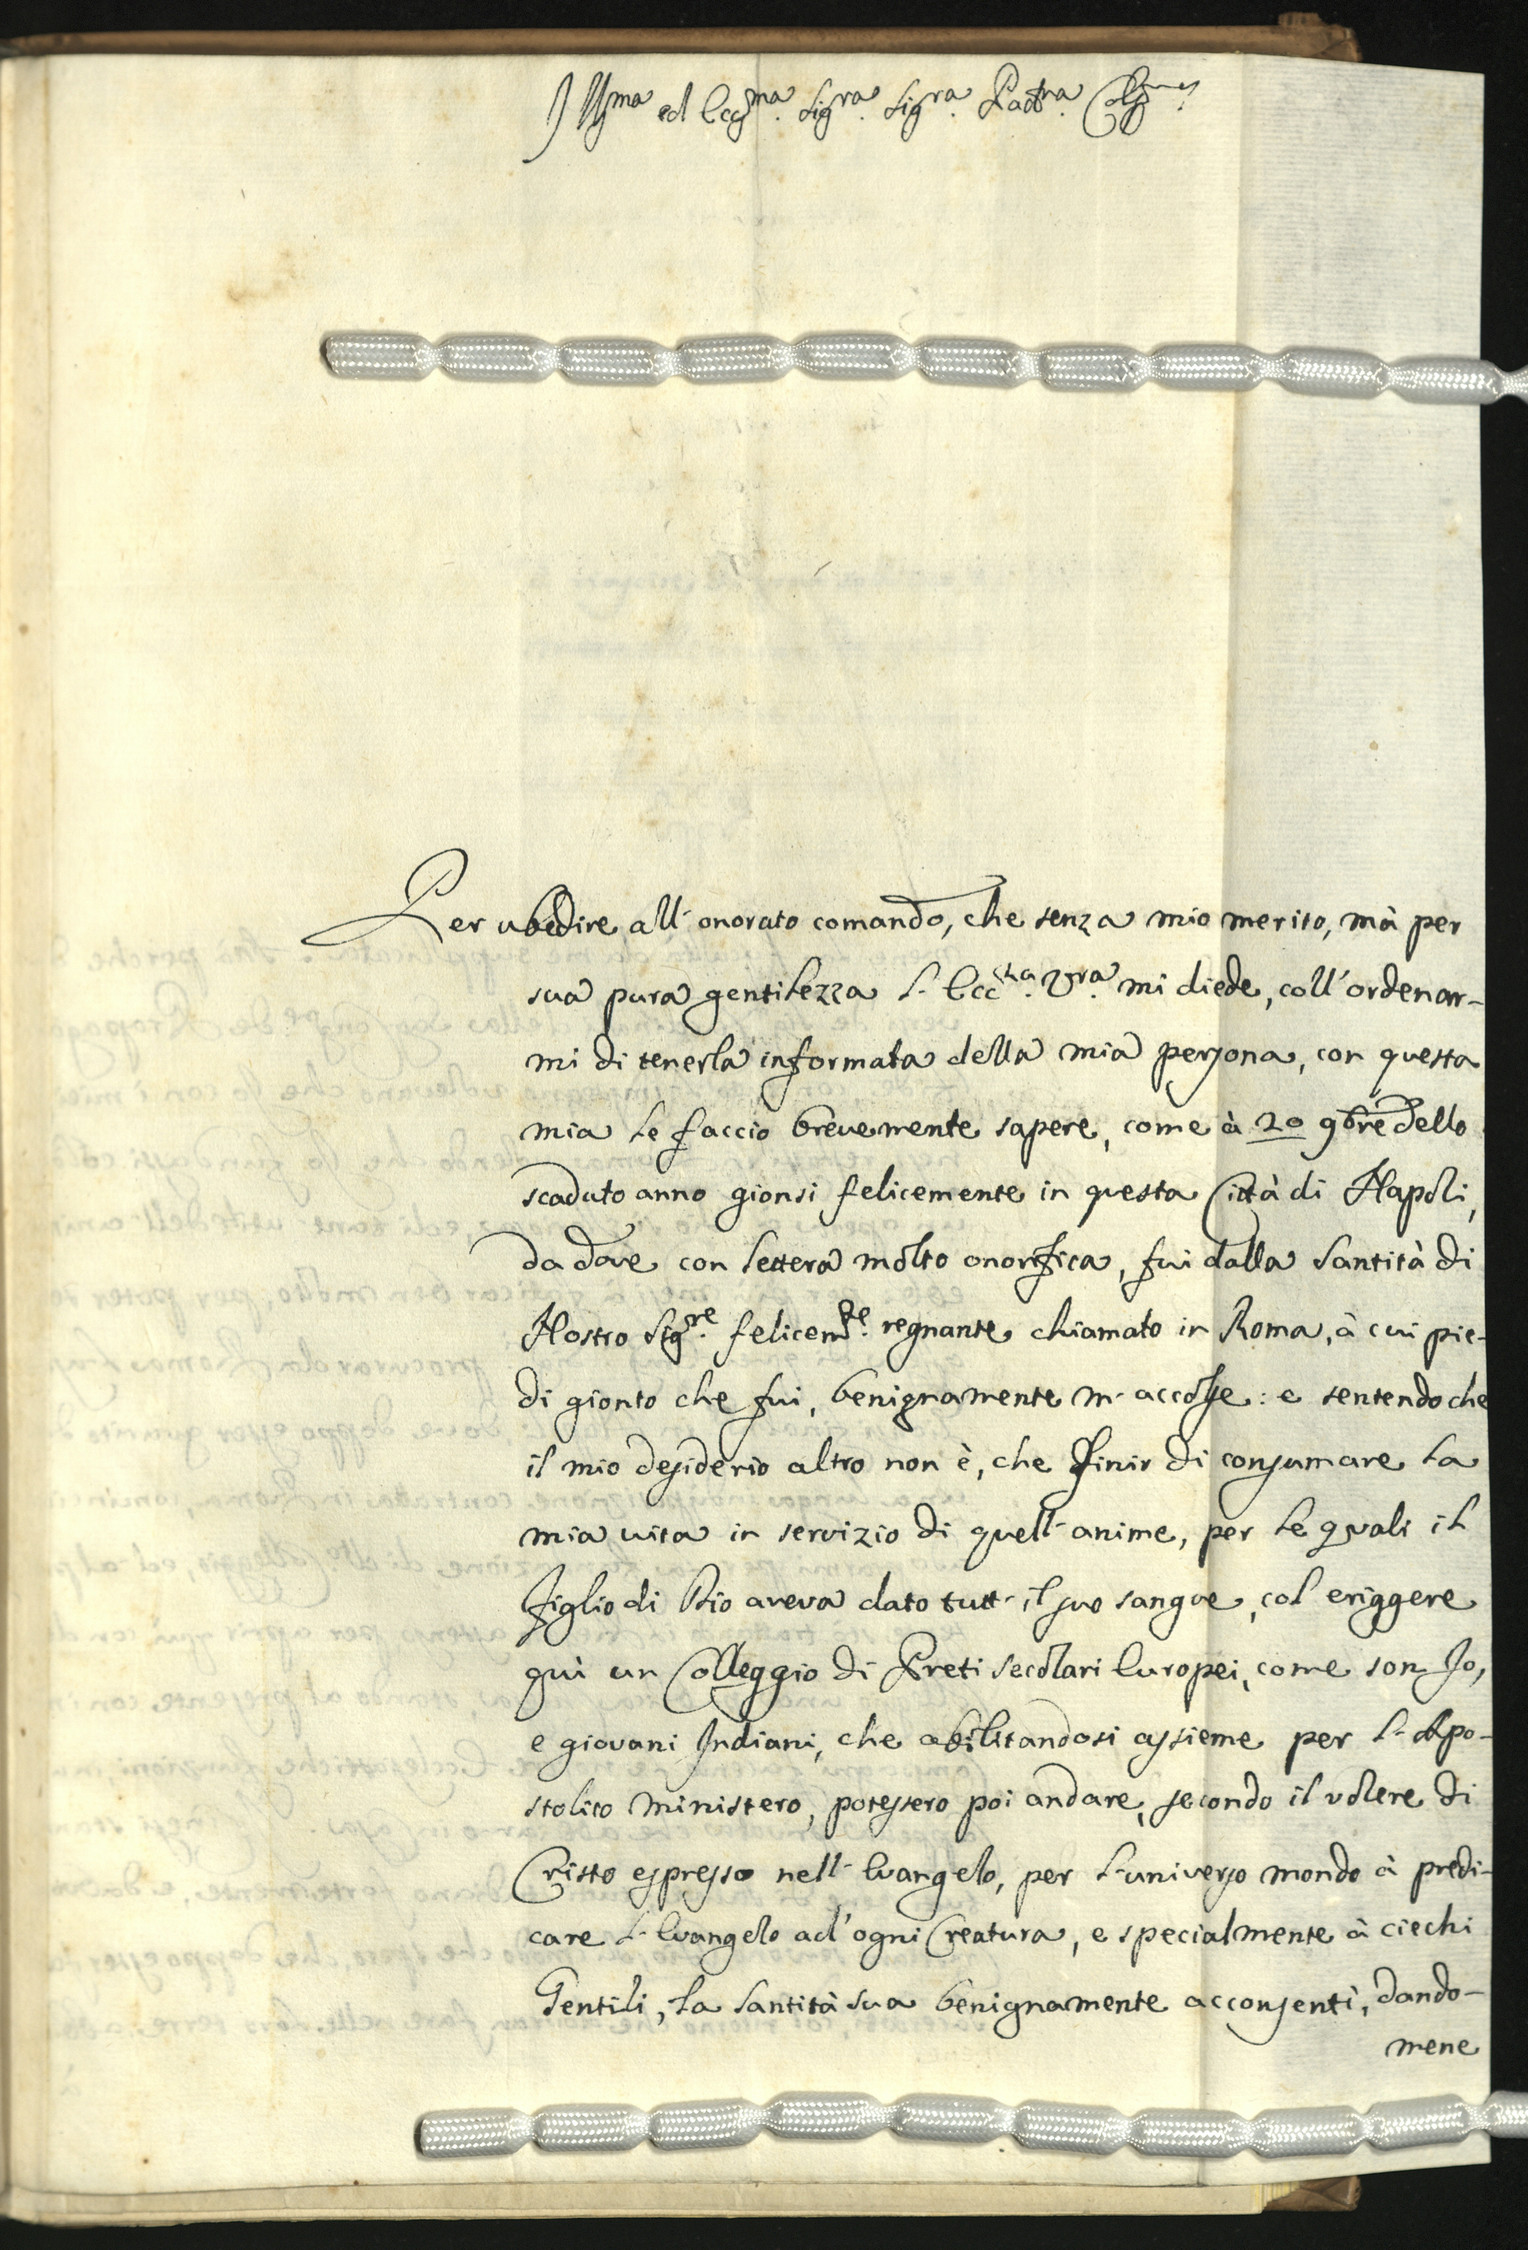 Illma ed Eccma. Sigra. Sigra. Padna. Colma.
Per ubedire all'onorato comando, che senza mio merito, mà per
sua pura gentilezza l'Eccza. Vra. mi diede, coll'ordenar-
mi di tenerla informata della mia persona, con questa
mia le faccio brevemente sapere, come à 20 9bre dello
scaduto anno gionsi felicemente in questa Città di Napoli,
da dove con lettera molto onorifica, fui dalla Santità di
Nostro Sigre. felicemte. regnante chiamato in Roma, à cui pie-
di gionto che fui, benignamente m'accolse: e sentendo che
il mio desiderio altro non è, che finir di consumare la
mia vita in servizio di quell'anime, per le quali il
figlio di Dio aveva dato tutt'il suo sangue, col eriggere
quì un Colleggio di Preti secolari Europei, come son Io,
e giovani Indiani, che abilitandosi assieme per l'Apo-
stolico ministero, potessero poi andare, secondo il volere di
Cristo espresso nell'Evangelo, per l'universo mondo à predi-
care l'Evangelo ad'ogni Creatura, e specialmente à ciechi
Gentili, la Santità sua benignamente acconsentì, dando-
mene